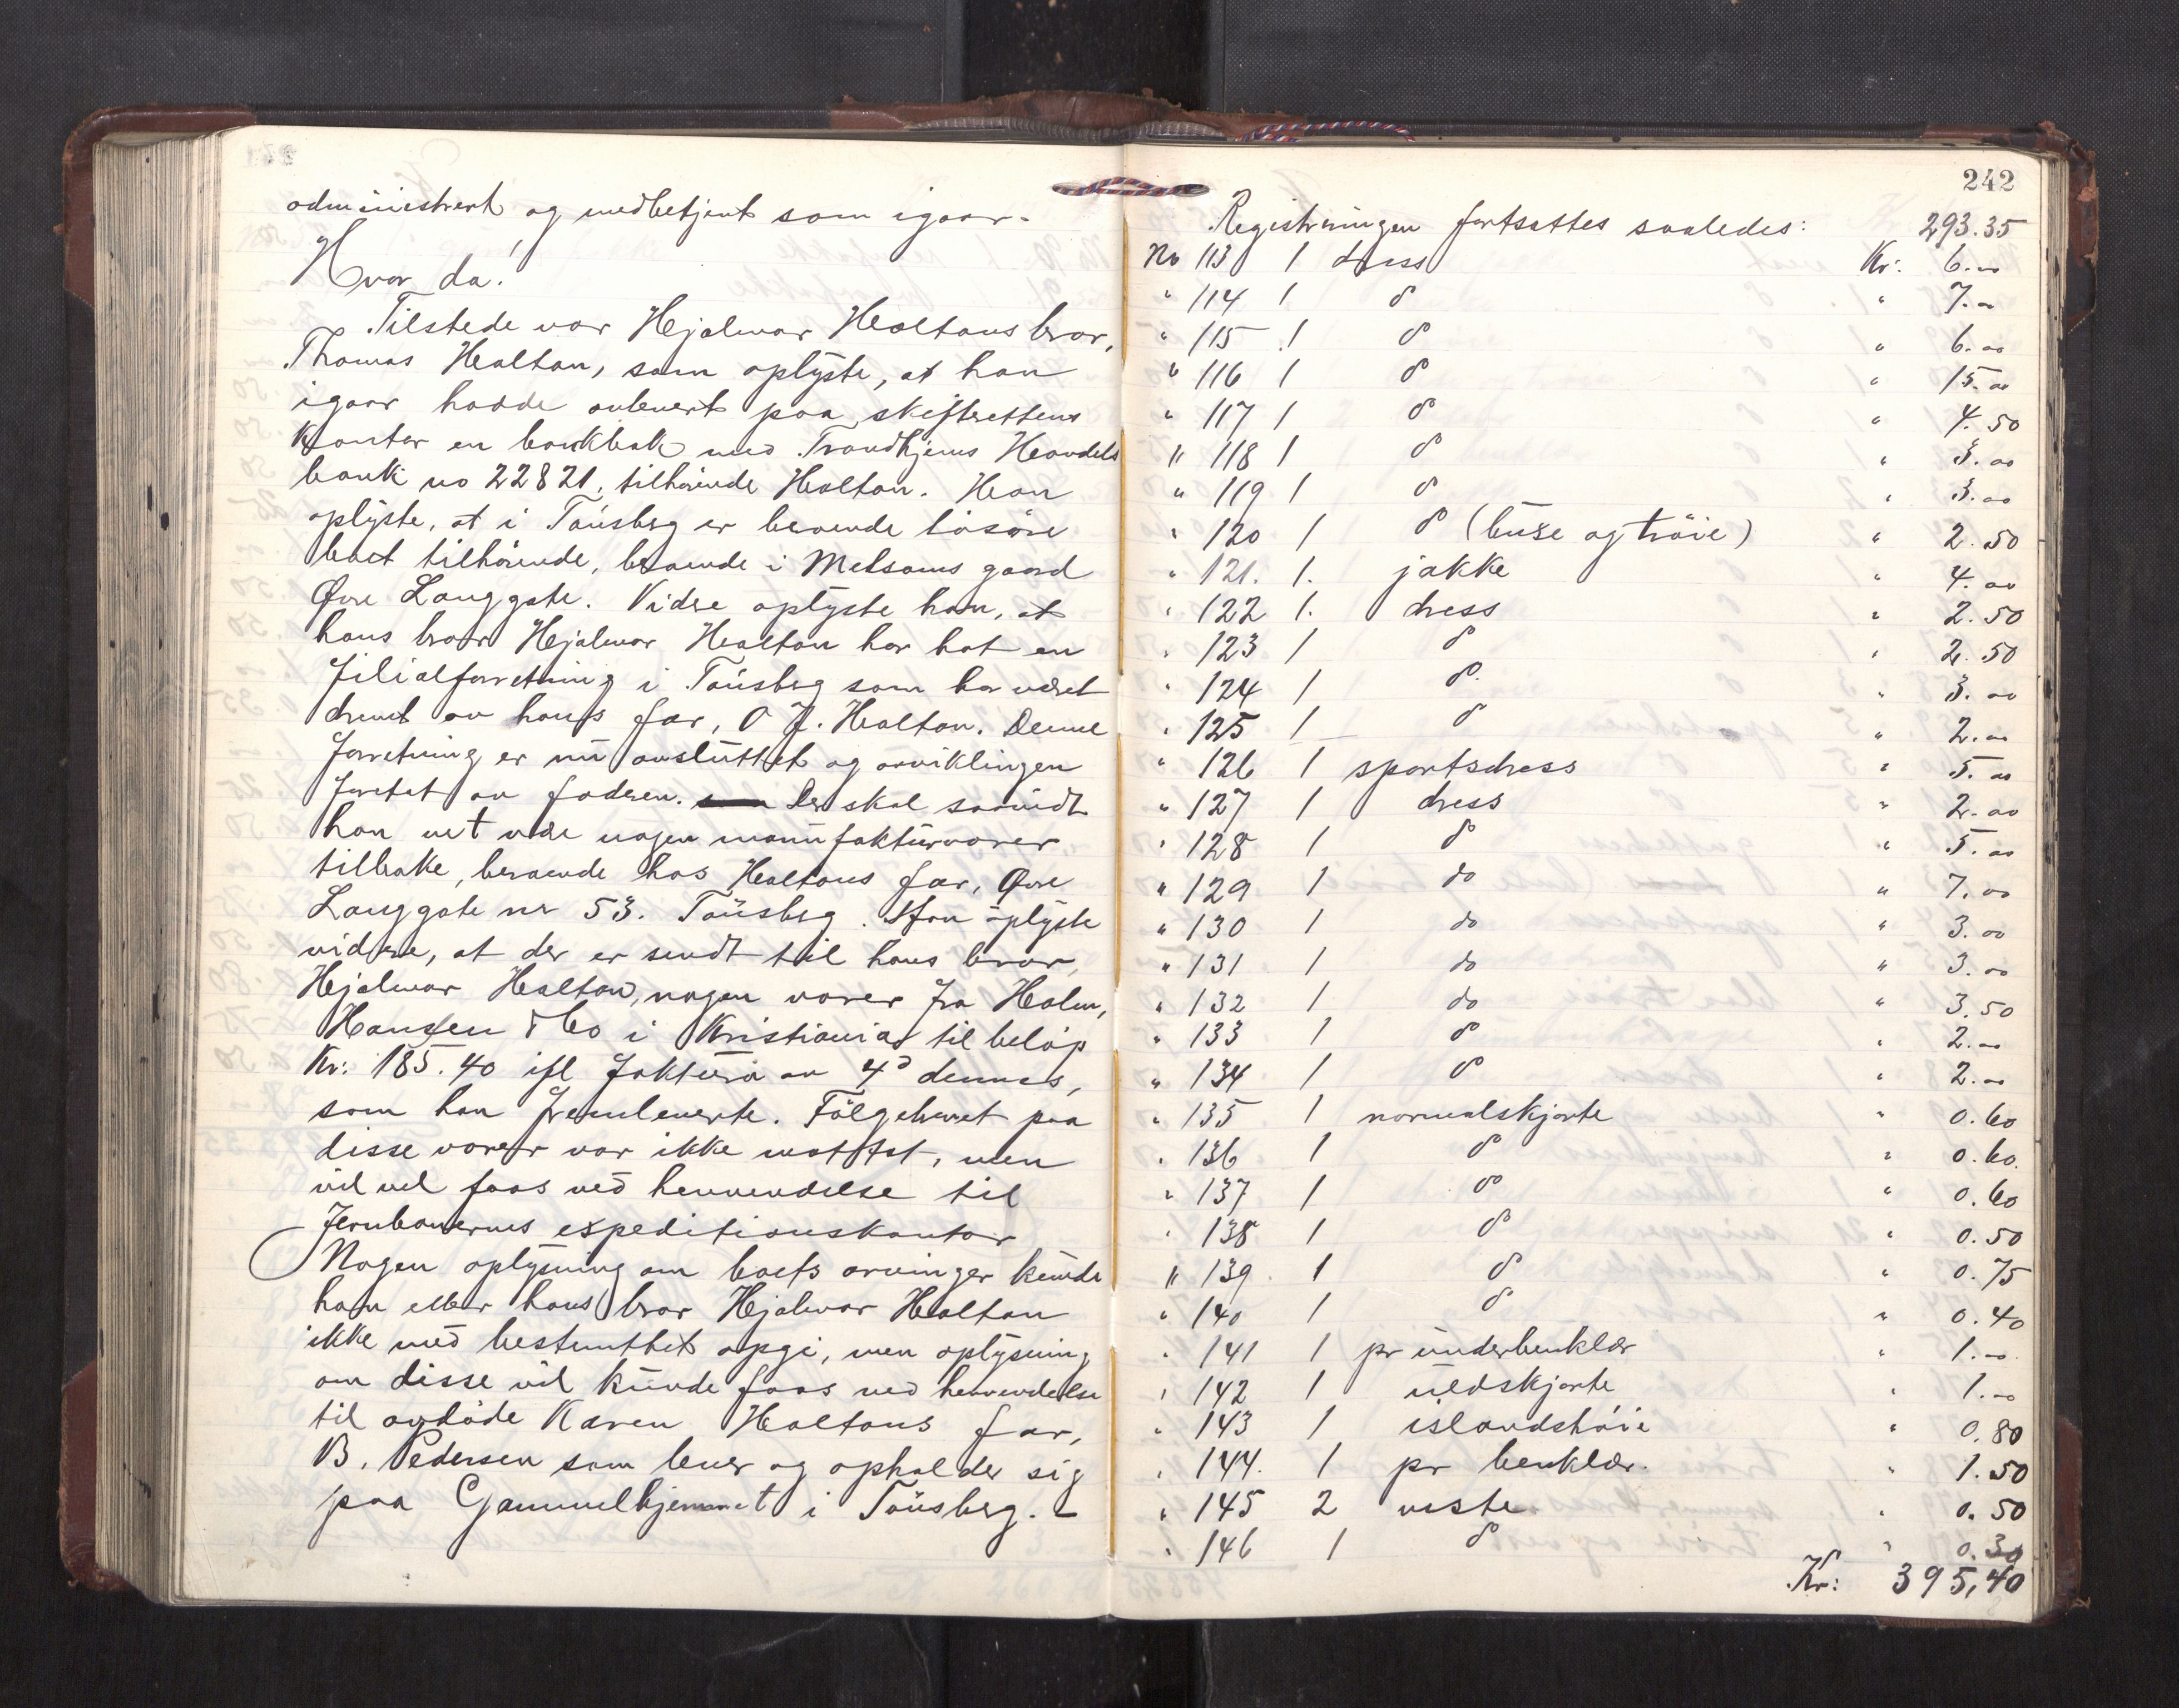 administrert og medbetjent som igaar.
Hvor da!
Tilstede var Hjalmar Holtans bror,
Thomas Holtan, som oplyste, at han
igaar hadde avlevert paa skifterettens
kontor en bankbok med Trondhjems Handels
bank no 22821, tilhørende Holtan. Han
oplyste, at i Tønsberg er beroende løsøre
boet tilhørende, beroende i Melsoms gaard
Øvre Langgate. Videre oplyste han, at
hans bror Hjalmar Holtan har hat en
filialforretning i Tønsberg som har været
drevet av hans far, O J. Holtan. Denne
forretning er nu avsluttet og avviklingen
foretat av faderen. Der skal saavidt
han vet være nogen manufakturvarer
tilbake, beroende hos Holtans far, Øvre
Langgate nr 53. Tønsberg. Han oplyste
videre, at der er sendt til hans bror,
Hjalmar Holtan, nogen varer fra Holm,
Hansen & Co i Kristiania til beløp
Kr: 185.40 ifl faktura av 4d dennes,
som han fremleverte. Følgebrevet paa
disse varer var ikke mottat, men
vil vel faaes ved henvendelse til
Jernbanernes expeditionskontor
Nogen oplysning om boets arvinger kunde
han eller hans bror Hjalmar Holtan
ikke med bestemthet opgi, men oplysning
om disse vil kunde faaes ved henvendelse
til avdøde Karen Holtans far,
B. Pedersen som lever og opholder sig
paa Gammelhjemmet i Tønsberg. -
242
Registreringen fortsattes saaledes: 293.35
No 113 1 dress Kr: 6.00
" 114 1 do " 7.00
" 115 1 do " 6.00
" 116 1 do " 15.00
" 117 1 do " 4.50
" 118 1 do " 3.00
" 119 1 do " 3.00
" 120 1 do (buxe og trøie) " 2.50
" 121. 1. jakke " 4.00
" 122 1. dress " 2.50
" 123 1 do " 2.50
" 124 1 do " 3.00
" 125 1 do " 2.00
" 126 1 sportsdress " 5.00
" 127 1 dress " 2.00
" 128 1 do " 5.00
" 129 1 do " 7.00
" 130 1 do " 3.00
" 131 1 do " 3.00
" 132 1 do " 3.50
" 133 1 do " 2.00
" 134 1 do " 2.00
" 135 1 normalskjorte " 0.60
" 136 1 do " 0.60.
" 137 1 do " 0.60
" 138 1 do " 0.50
" 139 1 do " 0.75
" 140 1 do " 0.40
" 141 1 pr underbenklær " 1.00
" 142 1 uldskjorte " 1.00
" 143 1 islandstrøie " 0.80
" 144. 1 pr benklær. " 1.50
" 145 2 veste " 0.50
" 146 1 do " 0.30
Kr: 395,40